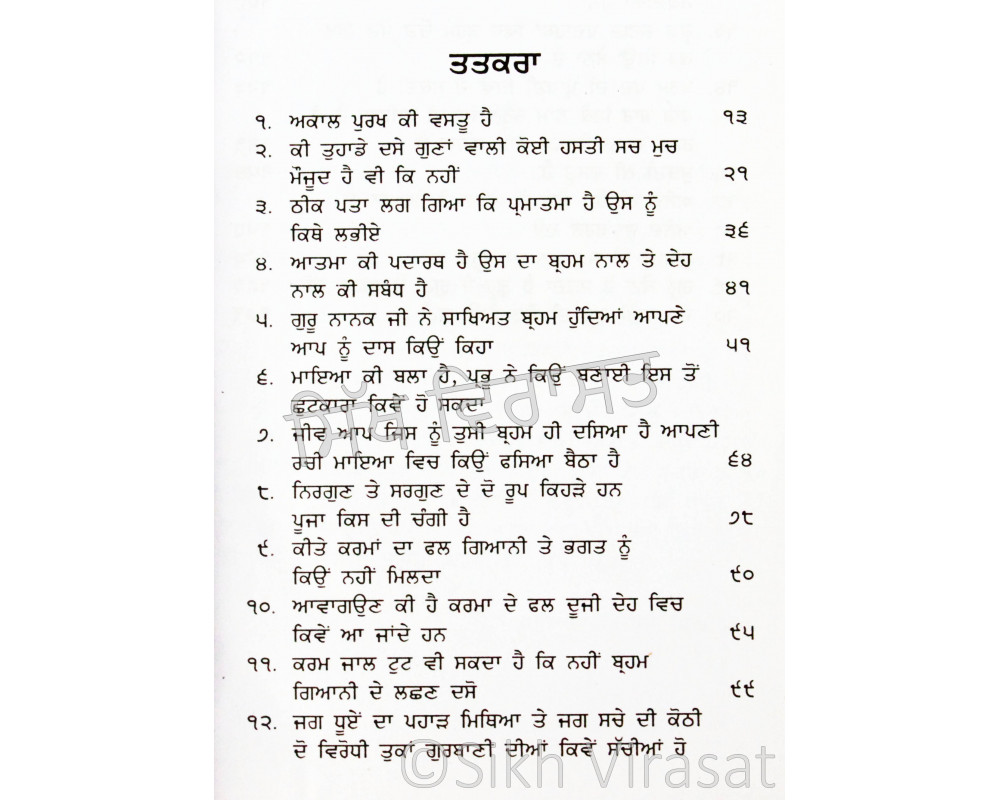 ਤਤਕਰਾ
੧. ਅਕਾਲ ਪੁਰਖ ਕੀ ਵਸਤੂ ਹੈ ੧੩
੨. ਕੀ ਤੁਹਾਡੇ ਦਸੇ ਗੁਣਾਂ ਵਾਲੀ ਕੋਈ ਹਸਤੀ ਸਚ ਮੁਚ
ਮੌਜੂਦ ਹੈ ਵੀ ਕਿ ਨਹੀਂ ੨੧
੩. ਠੀਕ ਪਤਾ ਲਗ ਗਿਆ ਕਿ ਪ੍ਰਮਾਤਮਾ ਹੈ ਉਸ ਨੂੰ
ਕਿਥੇ ਲਭੀਏ ੩੬
੪. ਆਤਮਾ ਕੀ ਪਦਾਰਥ ਹੈ ਉਸ ਦਾ ਬ੍ਰਹਮ ਨਾਲ ਤੇ ਦੇਹ
ਨਾਲ ਕੀ ਸਬੰਧ ਹੈ ੪੧
੫. ਗੁਰੂ ਨਾਨਕ ਜੀ ਨੇ ਸਾਖਿਅਤ ਬ੍ਰਹਮ ਹੁੰਦਿਆਂ ਆਪਣੇ
ਆਪ ਨੂੰ ਦਾਸ ਕਿਉਂ ਕਿਹਾ ੫੧
੬. ਮਾਇਆ ਕੀ ਬਲਾ ਹੈ, ਪ੍ਰਭੂ ਨੇ ਕਿਉਂ ਬਣਾਈ ਇਸ ਤੋਂ
ਛੁਟਕਾਰਾ ਕਿਵੇਂ ਹੋ ਸਕਦਾ
ਸਿੱਖ ਵਿਰਾਸਤ
੭. ਜੀਵ ਆਪ ਜਿਸ ਨੂੰ ਤੁਸੀ ਬ੍ਰਹਮ ਹੀ ਦਸਿਆ ਹੈ ਆਪਣੀ
ਰਚੀ ਮਾਇਆ ਵਿਚ ਕਿਉਂ ਫਸਿਆ ਬੈਠਾ ਹੈ ੬੪
੮. ਨਿਰਗੁਣ ਤੇ ਸਰਗੁਣ ਦੇ ਦੋ ਰੂਪ ਕਿਹੜੇ ਹਨ
ਪੂਜਾ ਕਿਸ ਦੀ ਚੰਗੀ ਹੈ ੭੮
੯. ਕੀਤੇ ਕਰਮਾਂ ਦਾ ਫਲ ਗਿਆਨੀ ਤੇ ਭਗਤ ਨੂੰ
ਕਿਉਂ ਨਹੀਂ ਮਿਲਦਾ ੯੦
੧੦. ਆਵਾਗਉਣ ਕੀ ਹੈ ਕਰਮਾ ਦੇ ਫਲ ਦੂਜੀ ਦੇਹ ਵਿਚ
ਕਿਵੇਂ ਆ ਜਾਂਦੇ ਹਨ ੯੫
੧੧. ਕਰਮ ਜਾਲ ਟੁਟ ਵੀ ਸਕਦਾ ਹੈ ਕਿ ਨਹੀਂ ਬ੍ਰਹਮ
ਗਿਆਨੀ ਦੇ ਲਛਣ ਦਸੋ ੯੯
੧੨. ਜਗ ਧੂਏਂ ਦਾ ਪਹਾੜ ਮਿਥਿਆ ਤੇ ਜਗ ਸਚੇ ਦੀ ਕੋਠੀ
ਦੋ ਵਿਰੋਧੀ ਤੁਕਾਂ ਗੁਰਬਾਣੀ ਦੀਆਂ ਕਿਵੇਂ ਸੱਚੀਆਂ ਹੋ
©Sikh Virasat